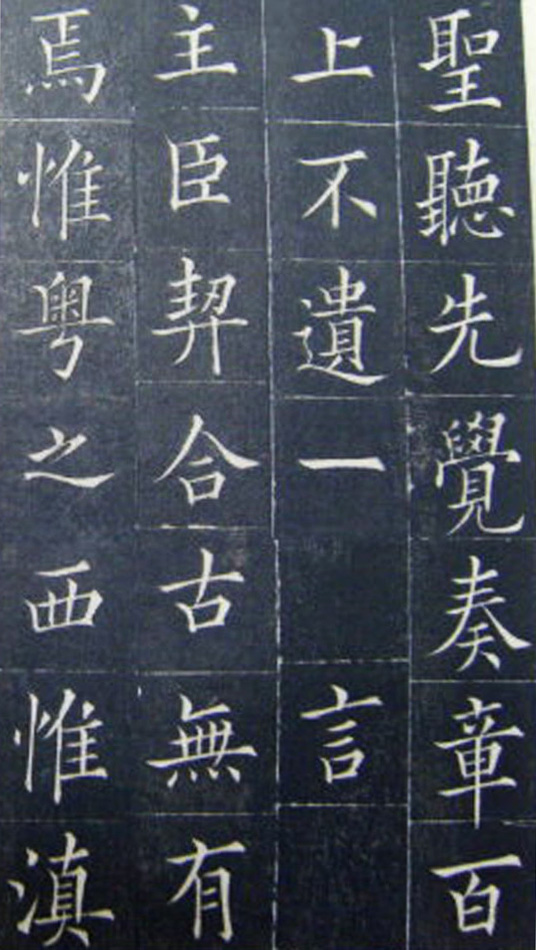 聖聽先覺奏章百
上不遺一言
主臣契合古無有
焉惟粤之西惟滇